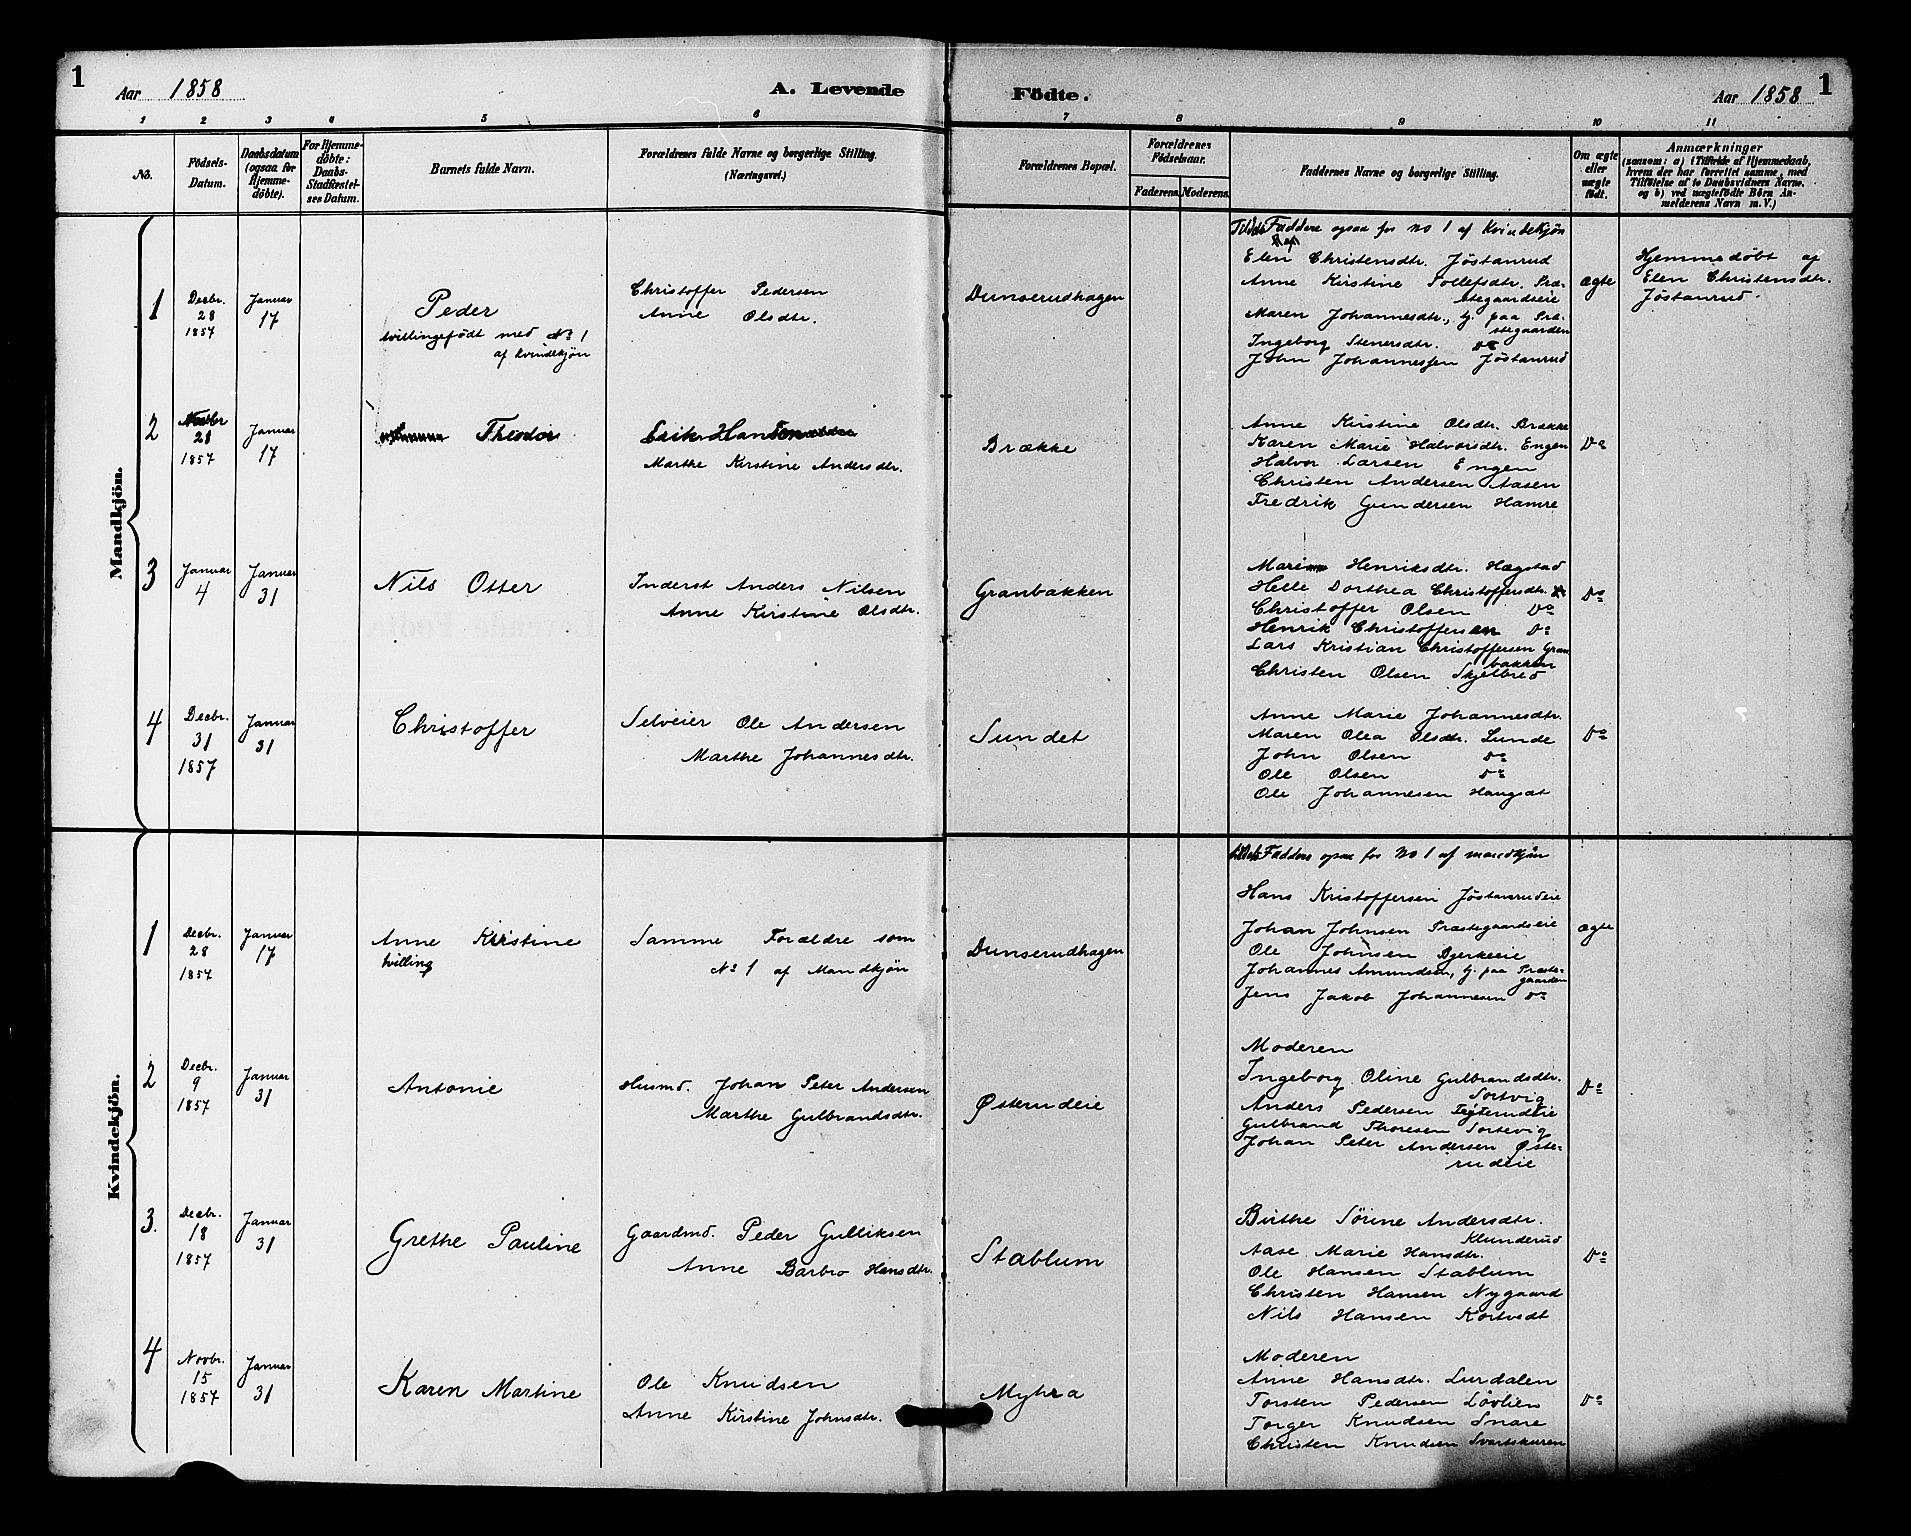 1
Aar 1858
A. Levende
Födte.
Aar 1858
1
1 2 3 4 5 6 7 8 9 10 11
No.
Födsels-
Datum.
Daabsdatum
(ogsaa for
Hjemme-
döbte).
For Hjemme-
döbte:
Daabs-
Stadfæstel-
ses Datum.
Barnets fulde Navn.
Forældrenes fulde Navne og borgerlige Stilling.
(Næringsvei.)
Forældrenes Bopæl.
Forældrenes
Födselsaar.
Faderens. Moderens.
Faddernes Navne og borgerlige Stilling.
Om ægte
eller
uægte
födt.
Anmærkninger
(saasom: a) i Tilfælde af Hjemmedaab,
hvem der har forrettet samme, med
Tilföielse af to Daabsvidners Navne,
og b) ved uægtefödte Börn An-
melderens Navn m. V.)
Mandkjön.
1
Decbr.
28
1857
Januar
17
Peder
tvillingefødt med No 1
af kvindekjøn
Christoffer Pedersen
Anne Olsdtr.
Dunserudhagen
Faddere ogsaa for No 1 af Kvindekjøn
Elen Christensdtr. Jøstanrud
Anne Kirstine Tollefsdtr. Præ-
stegaardseie
Maren Johannesdtr., tj. paa Præ-
stegaarden
Ingeborg Stenersdtr. Do
John Johannessen Jøstanrud
ægte
Hjemmedøbt af
Elen Christensdtr.
Jøstanrud.
2
28
1857
Januar
17
Theodor
Erik Hansen
Marthe Kirstine Andersdtr.
Brække
Anne Kirstine Olsdtr. Brække
Karen Marie Halvorsdtr. Engen
Halvor Larsen Engen
Christen Andersen Aasen
Fredrik Gundersen Hamre
Do
3
Januar
4
Januar
31
Nils Otter
Inderst Anders Nilsen
Anne Kirstine Olsdtr.
Granbakken
Henriksdtr. Hægstad
Helle Dorthea Christoffersdtr.
Christoffer Olsen Do
Henrik Christoffersen Do
Lars Kristian Christoffersen Gran
bakken
Christen Olsen Skjelbred
Do
4
Decbr.
31
1857
Januar
31
Christoffer
Selveier Ole Andersen
Marthe Johannesdtr.
Sundet
Anne Marie Johannesdtr.
Maren Olea Olsdtr. Lunde
John Olsen Do
Ole Olsen Do
Ole Johannesen Haugsæt
Do
Kvindekjön.
1
Decbr.
28
1857
Januar
17
Anne Kirstine
tvilling
Samme Forældre som
No 1 af Mandkjøn
Dunserudhagen
Faddere ogsaa for No 1 af mandkjøn
Hans Kristoffersen Jøstanrudeie
Johan Johnsen Præstegaardseie
Ole Johnsen Bjerkeeie
Johannes Amundsen, tj. paa Præste-
gaarden
Jens Jakob Johannesen Do
ægte
2
Decbr.
9
1857
Januar
31
Antonie
Husmd. Johan Peter Andersen
Marthe Gulbrandsdtr.
Østerudeie
Moderen
Ingeborg Oline Gulbrandsdtr.
Sortvig
Anders Pedersen
Gulbrand Thoresen Sortevig
Johan Peter Andersen Øste-
rudeie
Do
3.
Decbr.
18
1857
Januar
31
Grethe Pauline
Gaardmd. Peder Gulliksen
Anne Barbro Hansdtr.
Stablum
Birthe Sørine Andersdtr.
Klunderud
Aase Marie Hansdtr.
Ole Hansen Stablum
Christen Hansen Nygaard
Nils Hansen Kortvedt
Do
4
Novbr.
15
1857
Januar
31
Karen Martine
Ole Knudsen
Anne Kirstine Johnsdtr.
Myhra
Moderen
Anne Hansdtr. Lurdalen
Torsten Pedersen Løvlien
Torger Knudsen Snare
Christen Knudsen Svartskuren
Do